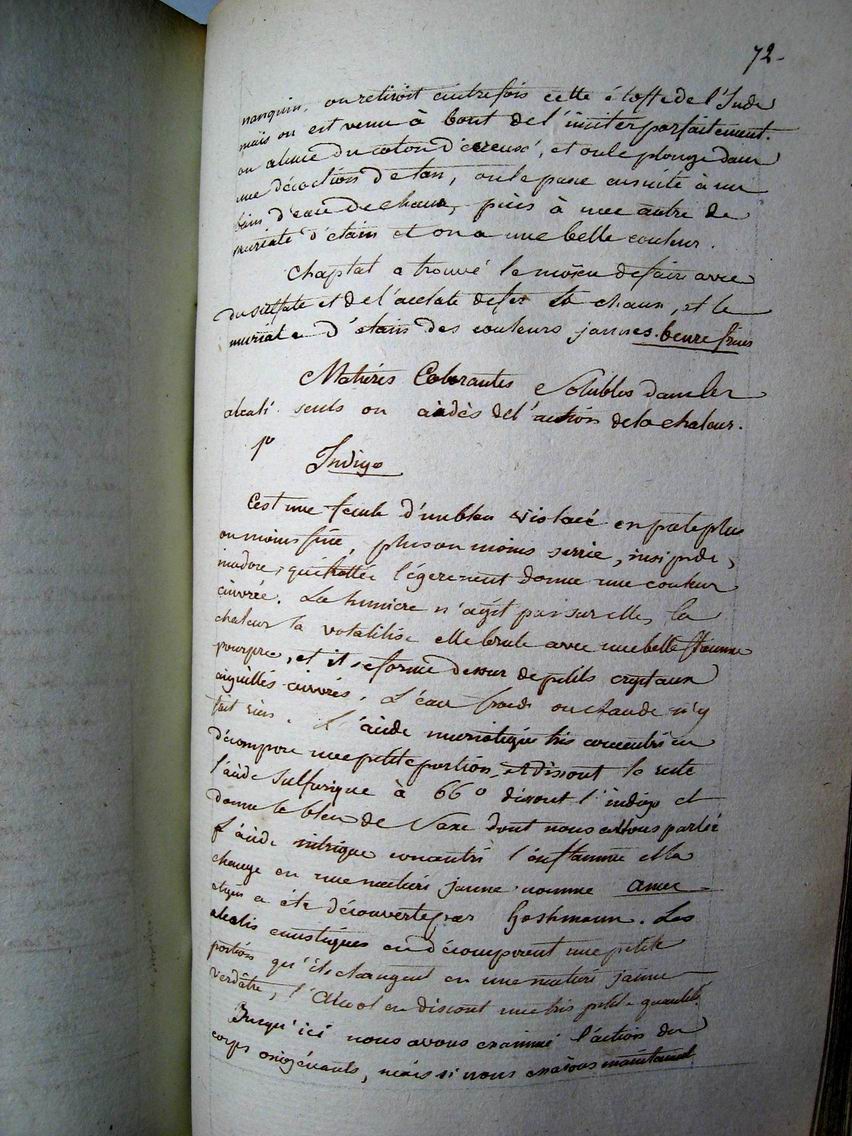 72.
nanquin, on retiroit autrefois cette étoffe de l'Inde
mais on est venu à bout de l'imiter parfaitement.
on alune du coton décreusé, et on le plonge dans
une décoction de tan, on le passe ensuite à un
bain d'eau de chaux, puis à une autre de
muriate d'étain et on a une belle couleur.
Chaptal a trouvé le moïen de faire avec
du sulfate et de l'acétate de fer la chaux, et le
muriate d'étain des couleurs jaunes. beure frais
Matières Colorantes Solubles dans les
alcali seuls ou aidés de l'action de la chaleur.
1º
Indigo
C'est une fécule d'un bleu violacé en pate plus
ou moins fine, plus ou moins serrée, insipide,
inodore, qui frottée légerement donne une couleur
cuivrée. La lumiere n'agit pas sur elle, la
chaleur la volatilise elle brule avec une belle flamme
pourpre, et il se forme dessus de petits cryptaux
aiguillés cuivrés. L'eau froide ou chaude n'y
fait rien. L'acide muriatique très concentré en
décompose une petite portion, et dissout le reste
l'acide Sulfurique à 66º dissout l'indigo et
donne le bleu de Saxe dont nous allons parler
L'acide nitrique concentré l'enflamme et la
change en une matière jaune nomme amer
a été découverte par hoshmann. Les
alcalis caustiques en décomposent une petite
portion qu'ils changent en une matiere jaune
verdâtre, l'Alcool en dissout une très petite quantité
Jusqu'ici nous avons examiné l'action des
corps oxigénants, mais si nous essaïons maintenant